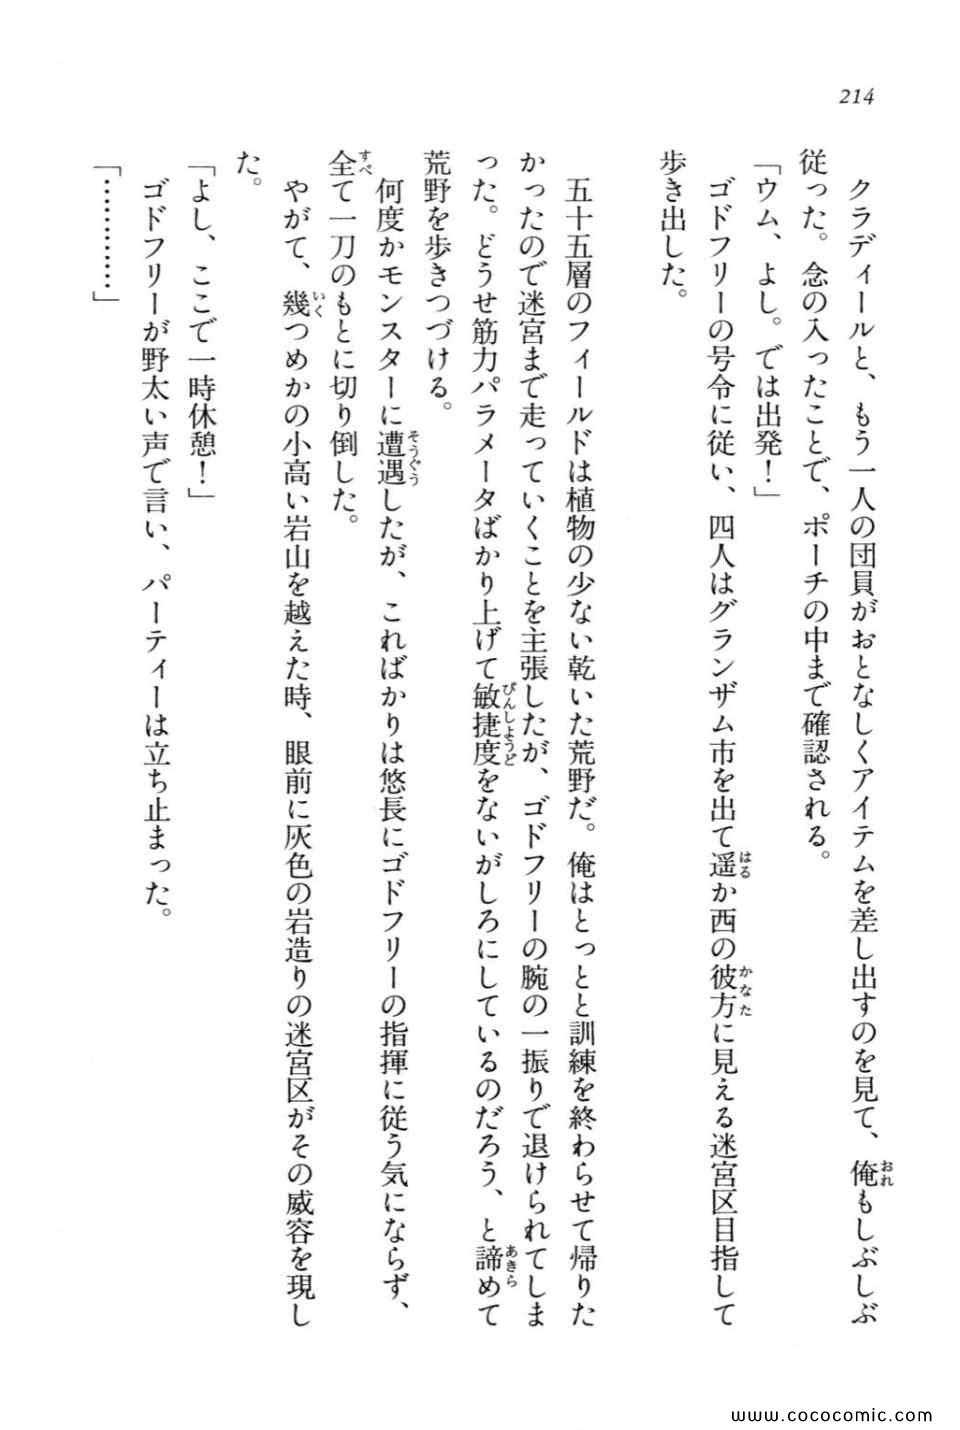 214
クラディールと、もう一人の団員がおとなしくアイテムを差し出すのを見て、俺もしぶしぶ
従った。念の入ったことで、ポーチの中まで確認される。
「ウム、よし。では出発！」
ゴドフリーの号令に従い、四人はグランザム市を出て遥か西の彼方に見える迷宮区目指して
歩き出した。
五十五層のフィールドは植物の少ない乾いた荒野だ。俺はとっとと訓練を終わらせて帰りた
かったので迷宮まで走っていくことを主張したが、ゴドフリーの腕の一振りで退けられてしま
った。どうせ筋力パラメータばかり上げて敏捷度をないがしろにしているのだろう、と諦めて
荒野を歩きつづける。
何度かモンスターに遭遇したが、こればかりは悠長にゴドフリーの指揮に従う気にならず、
全て一刀のもとに切り倒した。
やがて、幾つめかの小高い岩山を越えた時、眼前に灰色の岩造りの迷宮区がその威容を現し
た。
「よし、ここで一時休憩！」
ゴドフリーが野太い声で言い、パーティーは立ち止まった。
「…………」
www.cococomic.com